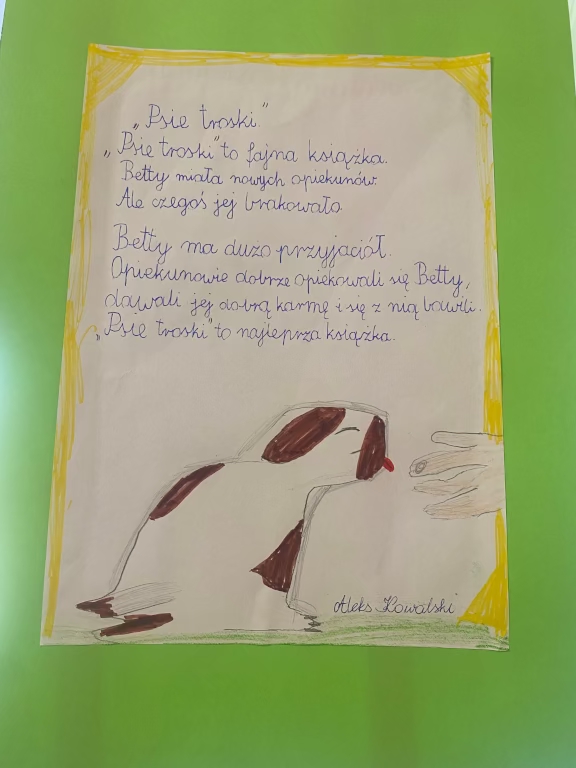 „Psie troski"
„Psie troski" to fajna książka.
Betty miała nowych opiekunów.
Ale czegoś jej brakowało.
Betty ma dużo przyjaciół.
Opiekunowie dobrze opiekowali się Betty,
dawali jej dobrą karmę i się z nią bawili.
„Psie troski" to najleprza książka.
Aleks Kowalski